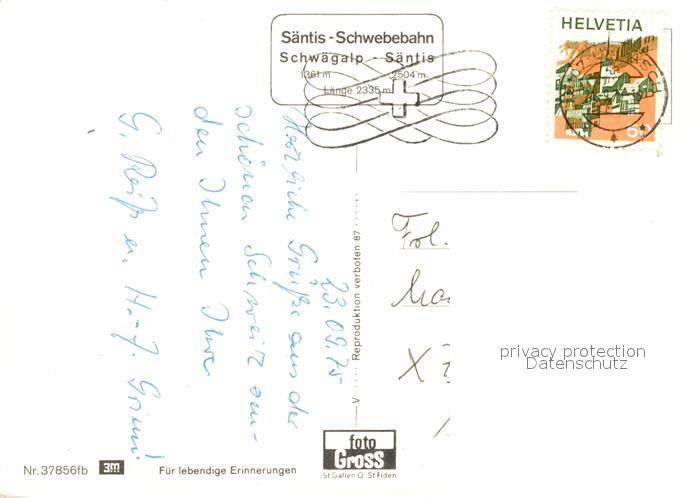 Säntis - Schwebebahn
Schwägalp - Säntis
1361 m 2504 m
Länge 2335 m
HELVETIA
23.09.75
Herzliche Grüße aus der
schönen Schweiz sen-
den Ihnen Ihre
G. Reiß u. H.-J. Grimm
Reproduktion verboten 87
V
Frl.
X
privacy protection
Datenschutz
foto
Gross
St Gallen O St Fiden
Nr. 37856fb 3m Für lebendige Erinnerungen